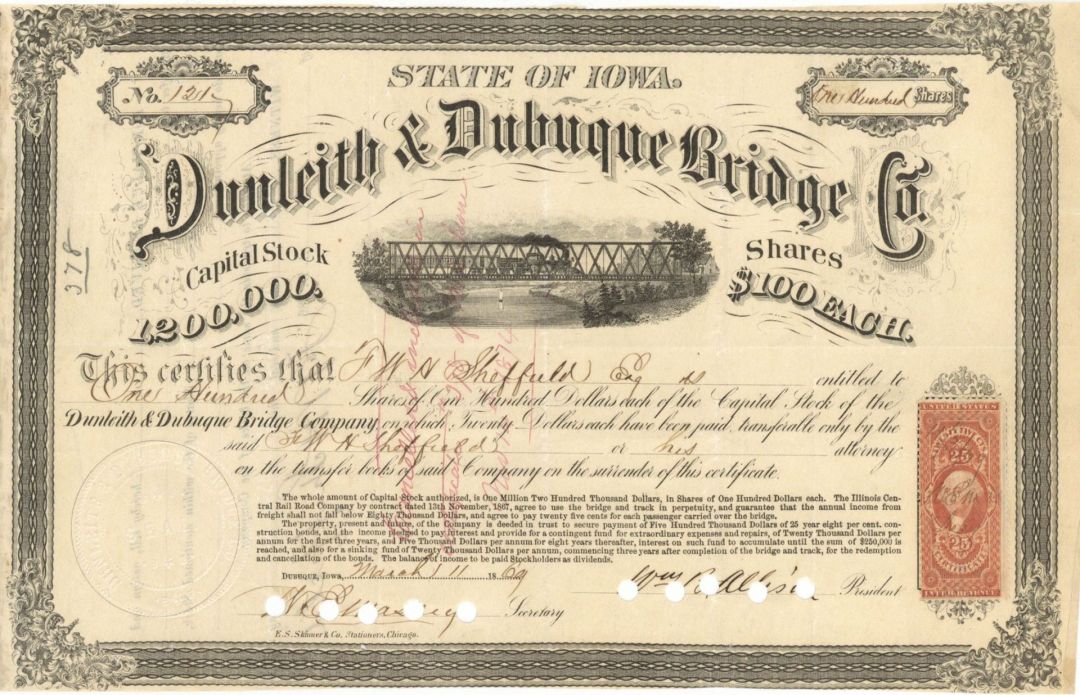 STATE OF IOWA.
No. 121
One Hundred Shares
Dunleith & Dubuque Bridge Co.
Capital Stock
1,200,000.
Shares
$100 EACH.
378
This certifies that F W H Sheffield Esq is entitled to
One Hundred Shares of One Hundred Dollars each of the Capital Stock of the
Dunleith & Dubuque Bridge Company, on which, Twenty Dollars each have been paid, transferable only by the
said F W H Sheffield or his attorney
on the transfer books of said Company on the surrender of this certificate.
The whole amount of Capital Stock authorized, is One Million Two Hundred Thousand Dollars, in Shares of One Hundred Dollars each. The Illinois Cen-
tral Rail Road Company by contract dated 13th November, 1867, agree to use the bridge and track in perpetuity, and guarantee that the annual income from
freight shall not fall below Eighty Thousand Dollars, and agree to pay twenty five cents for each passenger carried over the bridge.
The property, present and future, of the company is deeded in trust to secure payment of Five Hundred Thousand Dollars of 25 year eight per cent. con-
struction bonds, and the income pledged to pay interest and provide for a contingent fund for extraordinary expenses and repairs, of Twenty Thousand Dollars per
annum for the first three years, and Five Thousand Dollars per annum for eight years thereafter, interest on such fund to accumulate until the sum of $250,000 is
reached, and also for a sinking fund of Twenty Thousand Dollars per annum, commencing three years after completion of the bridge and track, for the redemption
and cancellation of the bonds. The balance of income to be paid Stockholders as dividends.
DUBUQUE, IOWA, March 11 1869
Wm B. Allison President
Secretary
E. S. Skinner & Co. Stationers, Chicago.
UNITED STATES
25
25
CERTIFICATE
INTER. REVENUE